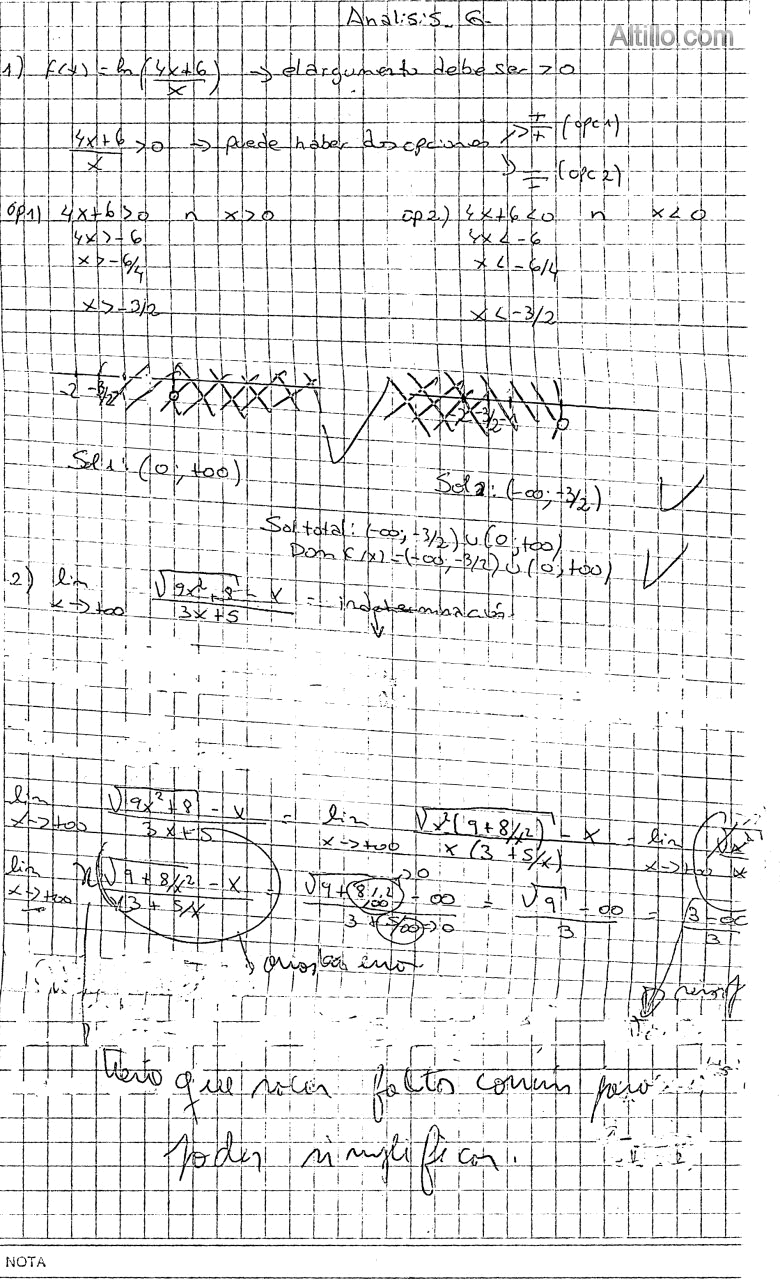 Analisis G
Altillo.com
1) f(x) = ln(4x+6/x) → el argumento debe ser > 0
4x+6/x > 0 → puede haber dos opciones → +/+ (opc 1)
→ -/- (opc 2)
op1) 4x+6>0 ∩ x>0 op2) 4x+6<0 ∩ x<0
4x>-6 4x<-6
x>-6/4 x<-6/4
x>-3/2 x<-3/2
-2 -3/2 0 -2 -3/2 -1 0
Sol 1: (0; +∞)
Sol 2: (-∞; -3/2)
Sol total: (-∞; -3/2) ∪ (0; +∞)
Dom f(x) = (-∞; -3/2) ∪ (0; +∞)
2) lim x→+∞ √(9x²+8) - x / 3x+5 = indeterminación
lim x→+∞ √(9x²+8) - x / 3x+5 = lim x→+∞ √(x²(9+8/x²)) - x / x(3+5/x) = lim x→+∞
lim x→+∞ x √(9+8/x²) - x / x3+5/x = - ∞ / 3 + 5/∞ →0 = √9 - ∞ / 3 = 3-∞ / 3
que sacar factor común para
poder simplificar.
NOTA